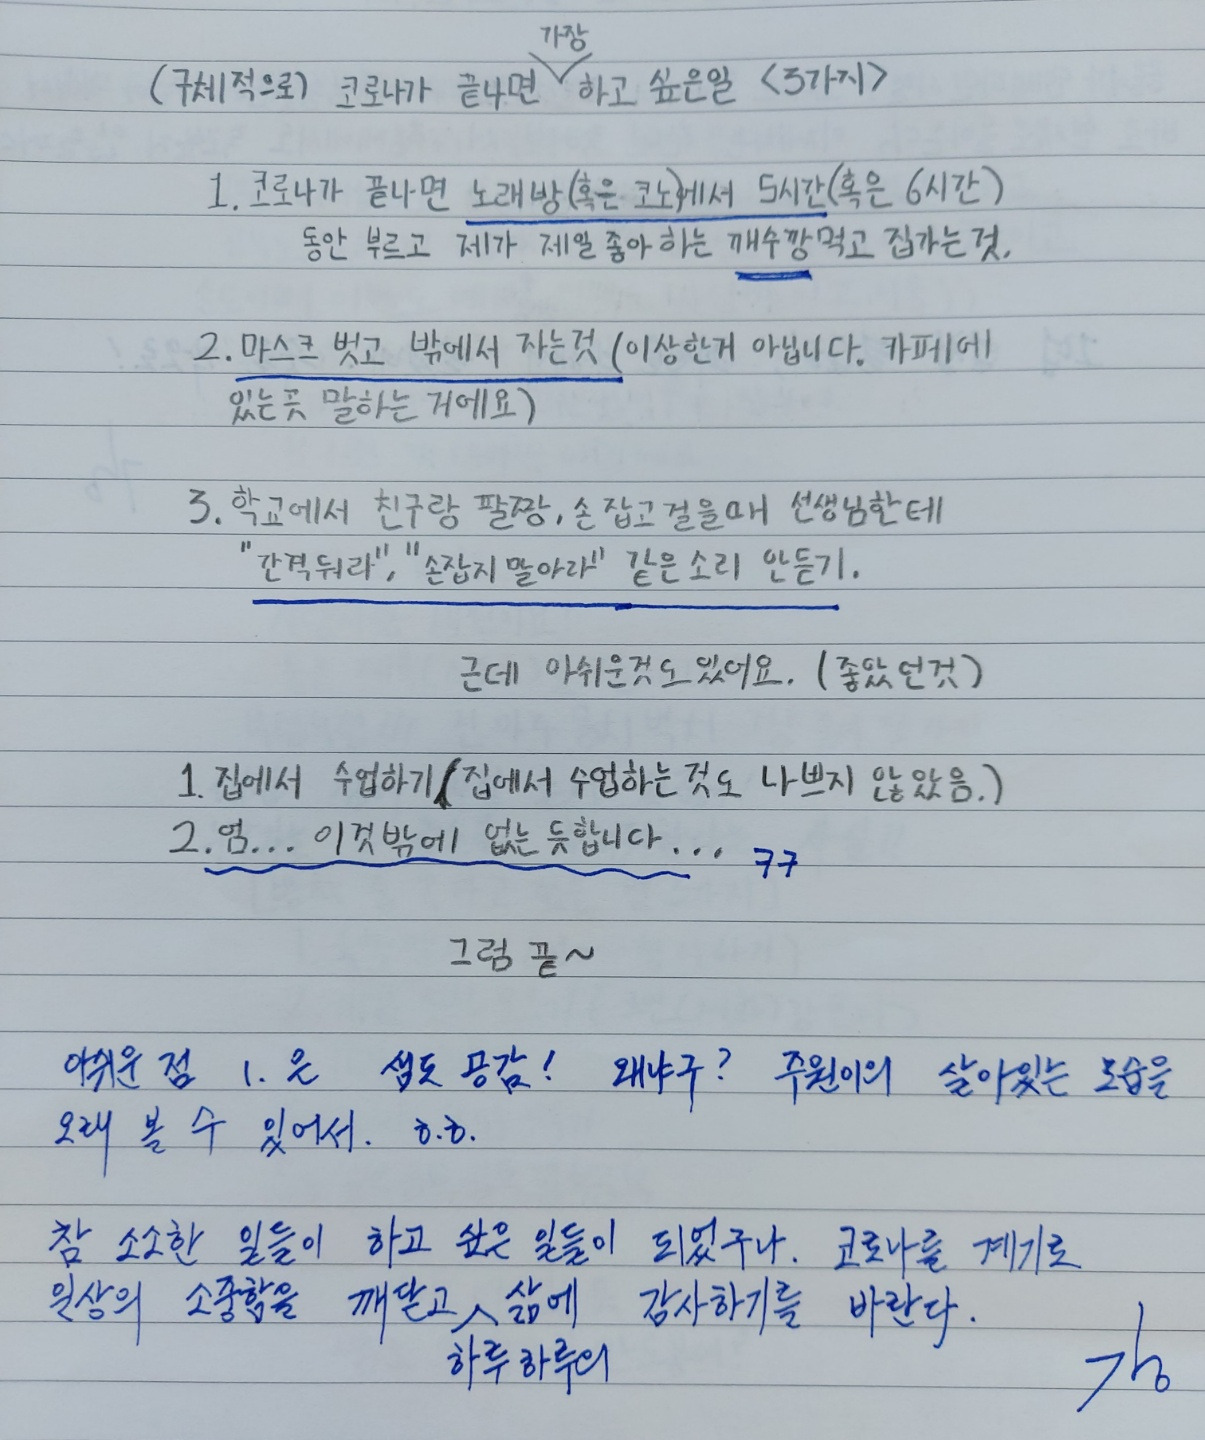 가장
(구체적으로) 코로나가 끝나면 하고 싶은일 <3가지>
1. 코로나가 끝나면 노래방(혹은 코노)에서 5시간(혹은 6시간)
동안 부르고 제가 제일 좋아 하는 깨수깡 먹고 집가는 것.
2. 마스크 벗고 밖에서 자는것 (이상한거 아닙니다. 카페에
있는곳 말하는 거에요)
3. 학교에서 친구랑 팔짱, 손 잡고 걸을때 선생님한테
"간격둬라", "손잡지 말아라" 같은 소리 안듣기.
근데 아쉬운것도 있어요. (좋았던것)
1. 집에서 수업하기 (집에서 수업하는 것도 나쁘지 않았음.)
2. 엄... 이것밖에 없는 듯합니다... ㅋㅋ
그럼 끝~
아쉬운 점 1. 은 쌤도 공감! 왜냐구? 주원이의 살아있는 모습을
오래 볼 수 있어서. ㅎ.ㅎ.
참 소소한 일들이 하고 싶은 일들이 되었구나. 코로나를 계기로
일상의 소중함을 깨닫고 삶에 감사하기를 바란다.
하루하루의